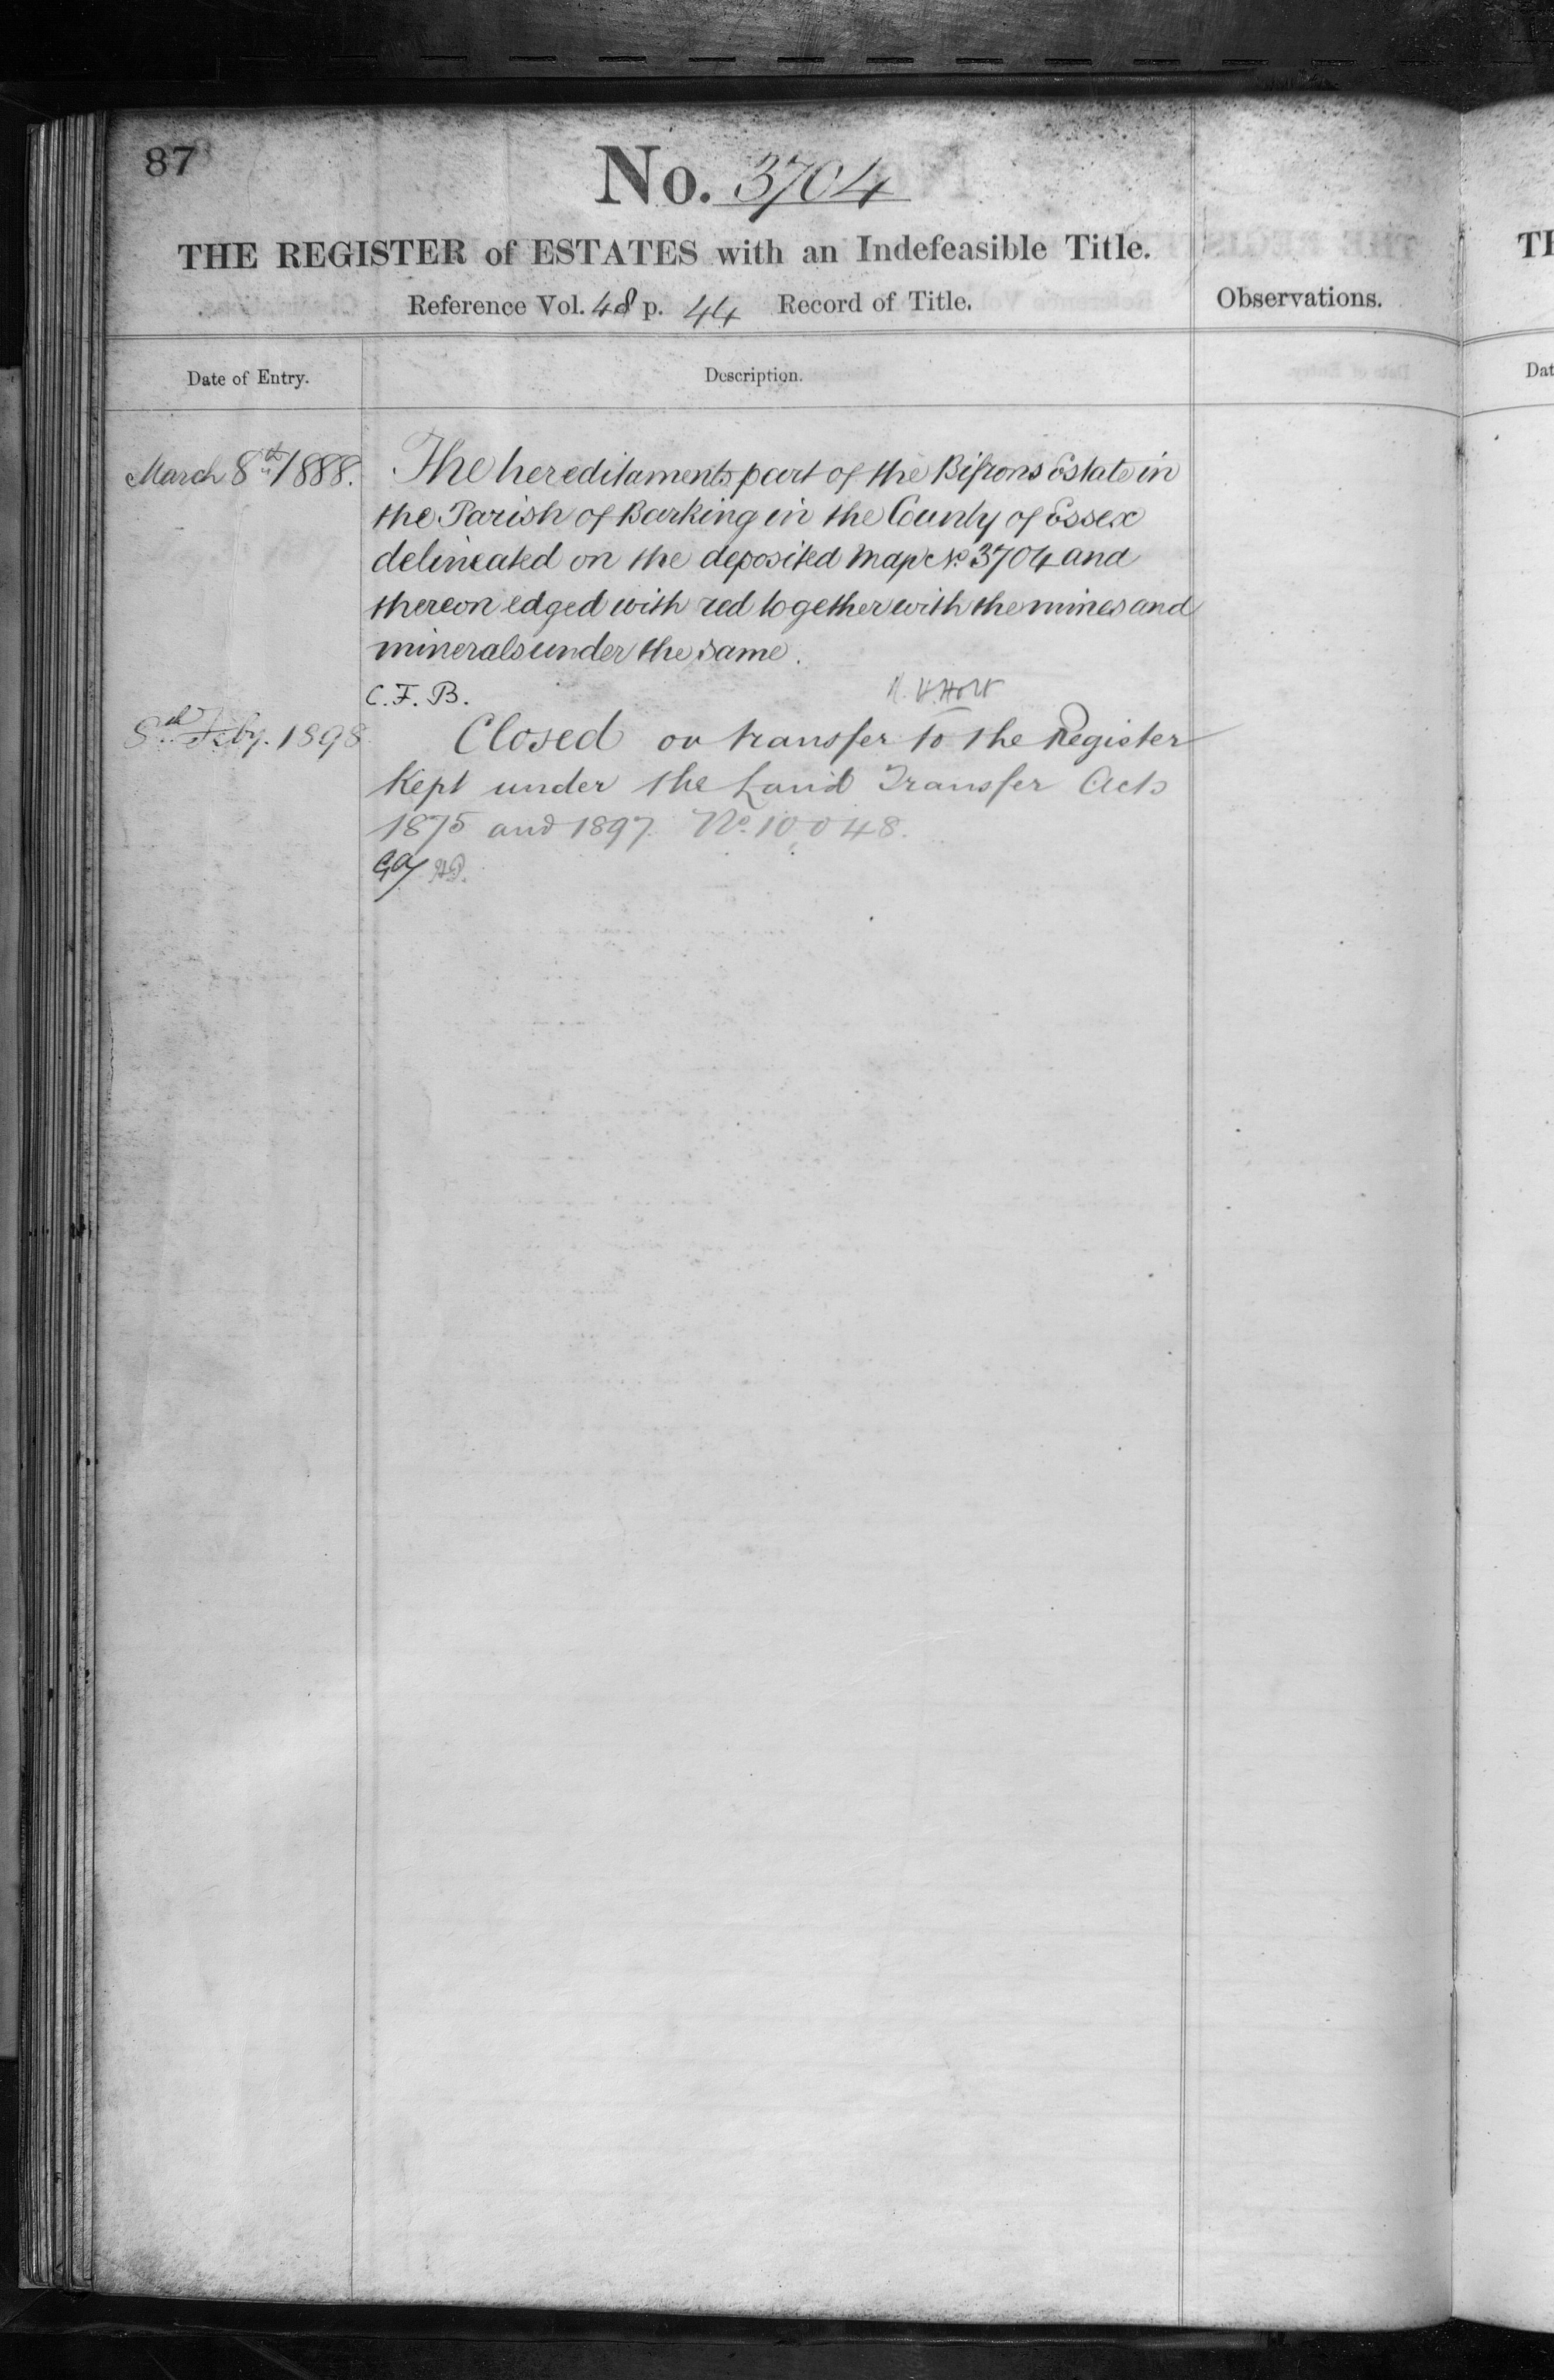 87
No. 3704
THE REGISTER of ESTATES with an Indefeasible Title.
Reference Vol. 48 p. 44 Record of Title.
Observations.
Date of Entry.
Description.
March 8th 1888.
The hereditaments part of the Bifrons Estate in
the Parish of Barking in the County of Essex
delineated on the deposited Map No. 3704 and
thereon edged with red together with the mines and
minerals under the same.
C. F. B.
8th Feby. 1898
Closed on transfer to the Register
Kept under the Land Transfer Acts
1875 and 1897. No. 10,048.